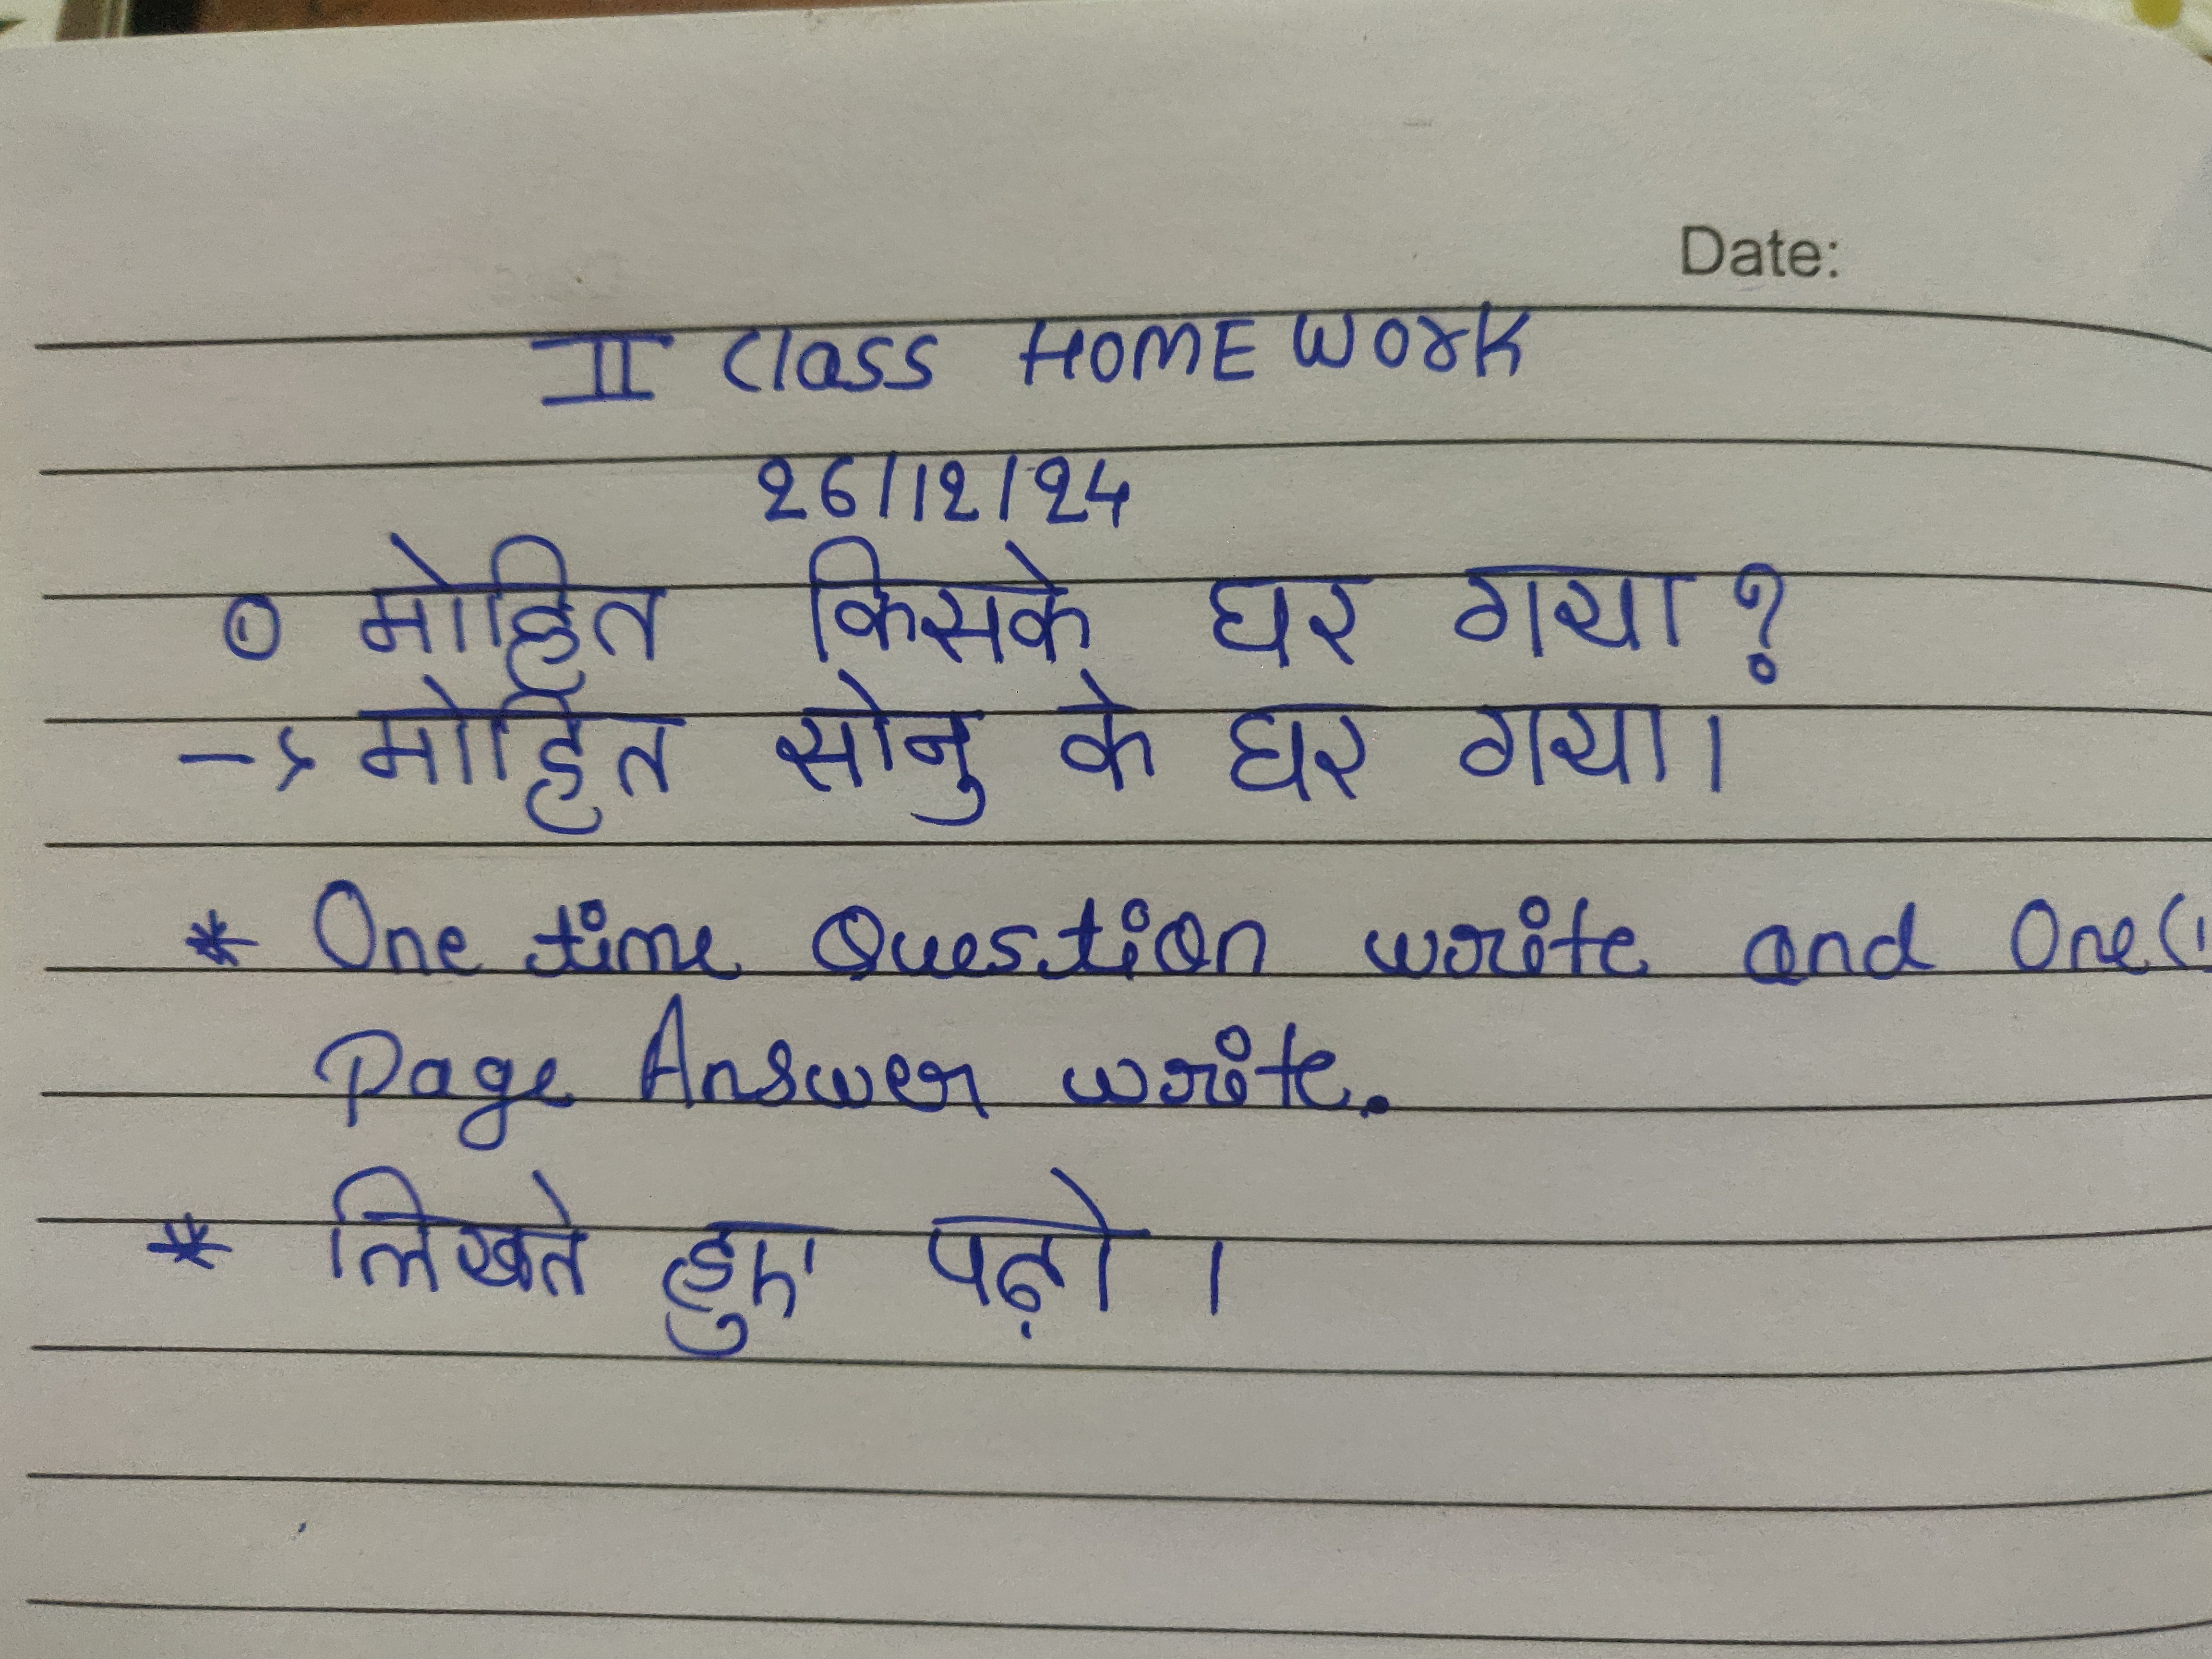 Date:
II Class HOME WORK
26/12/24
① मोहित किसके घर गया?
→ मोहित सोनु के घर गया।
* One time Question write and One(1
Page Answer write.
* लिखते हुए पढ़ो।